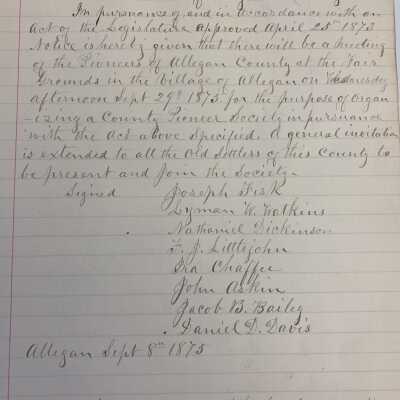 In pursuance of and in accordance with an
Act of the Legislature approved April 25th 1873
Notice is hereby given that there will be a meeting
of the Pioneers of Allegan County at the Fair
Grounds in the Village of Allegan on Wednesday
afternoon Sept 29th 1875. for the purpose of organ
-izing a County Pioneer Society in pursuance
with the Act above Specified. A general invitation
is extended to all the Old Settlers of this County to
be present and Join the Society.
Signed Joseph Fisk
Lyman W. Watkins
Nathaniel Dickinson
F. J. Littlejohn
Ira Chaffee
John Askin
Jacob B. Bailey
Daniel D. Davis
Allegan Sept 8th 1875